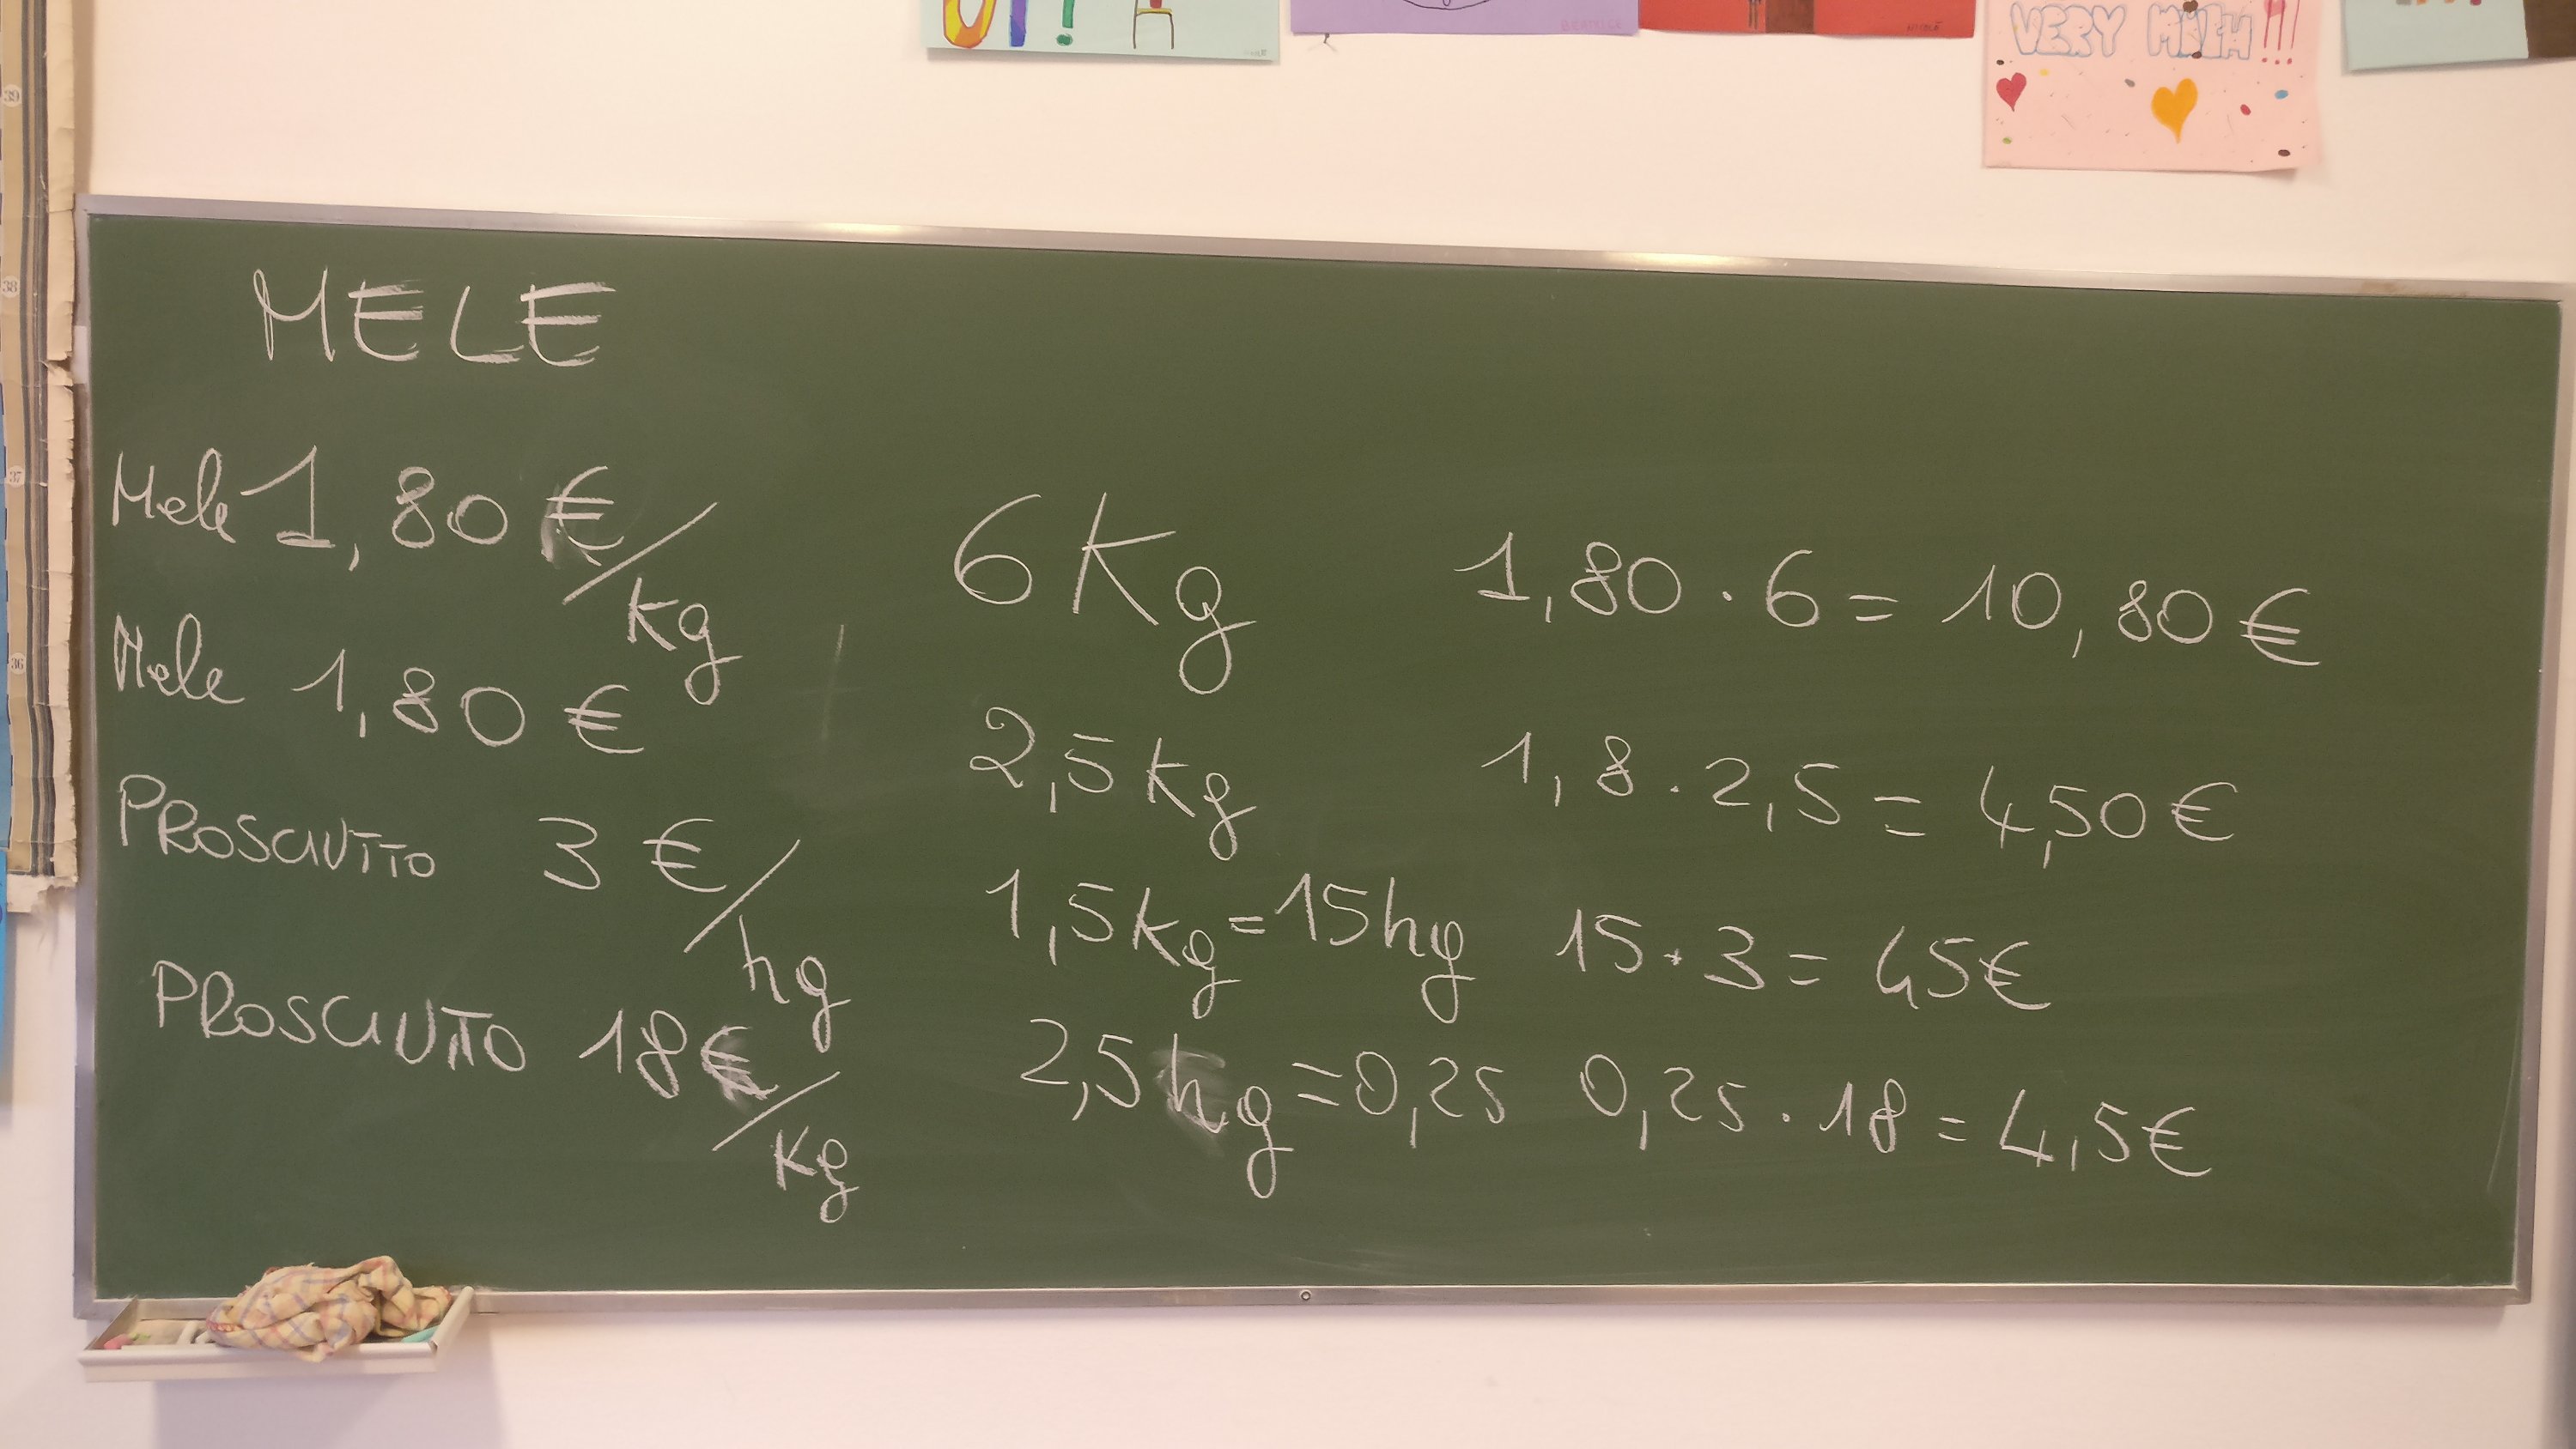 VERY MUCH!!!
BEATRICE
NICOLE
39
38
37
36
MELE
Mele 1,80 €/kg 6 Kg 1,80 · 6 = 10,80 €
Mele 1,80 € 2,5 kg 1,8 · 2,5 = 4,50 €
PROSCIUTTO 3 €/hg 1,5 kg = 15 hg 15 · 3 = 45 €
PROSCIUTTO 18 €/kg 2,5 hg = 0,25 0,25 · 18 = 4,5 €